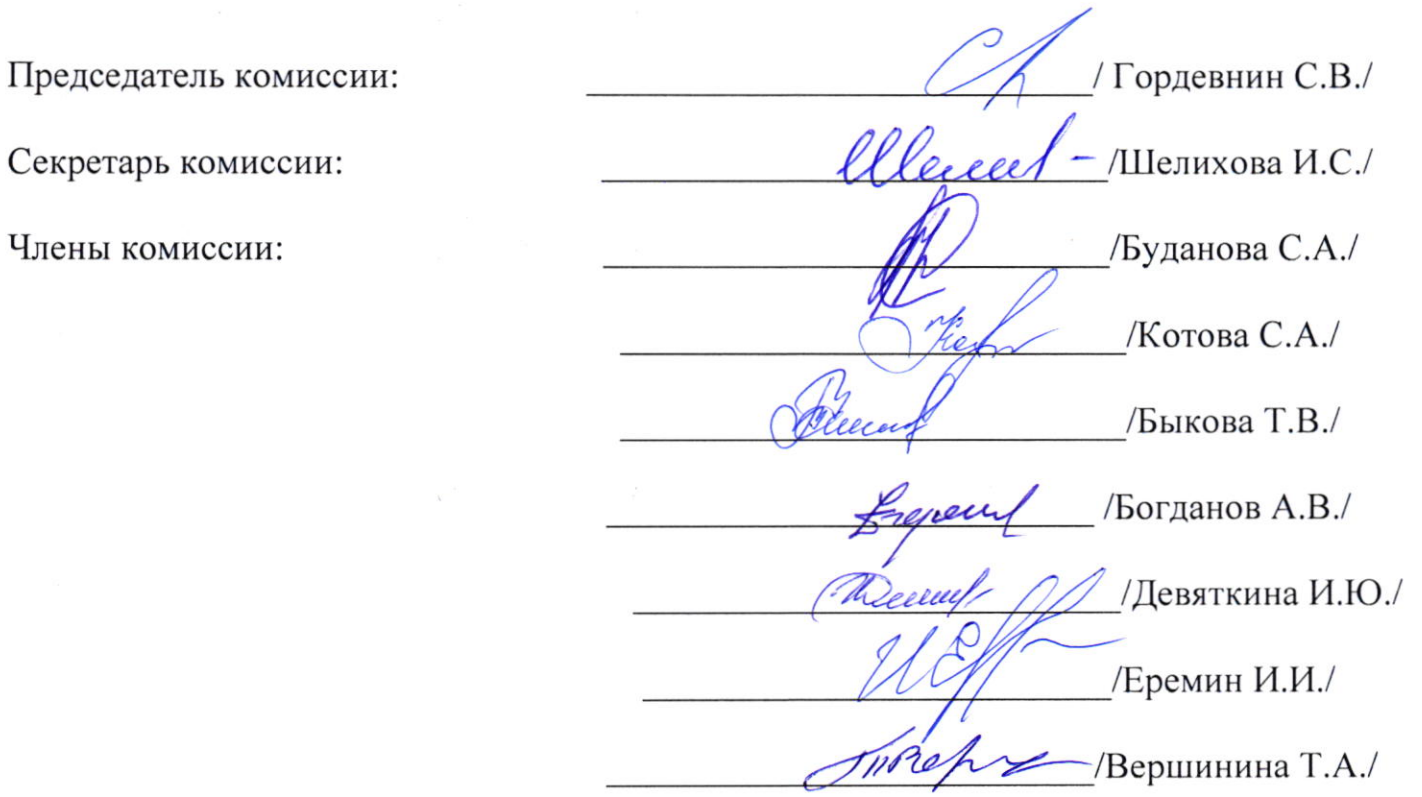 Председатель комиссии: / Гордевнин С.В./
Секретарь комиссии: /Шелихова И.С./
Члены комиссии: /Буданова С.А./
/Котова С.А./
/Быкова Т.В./
/Богданов А.В./
/Девяткина И.Ю./
/Еремин И.И./
/Вершинина Т.А./